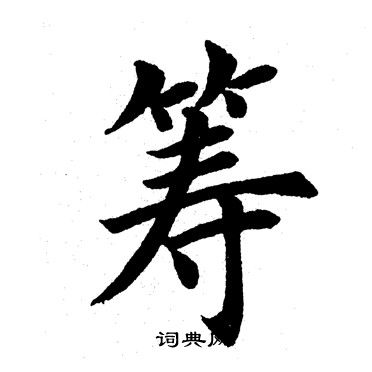 筹
词典网